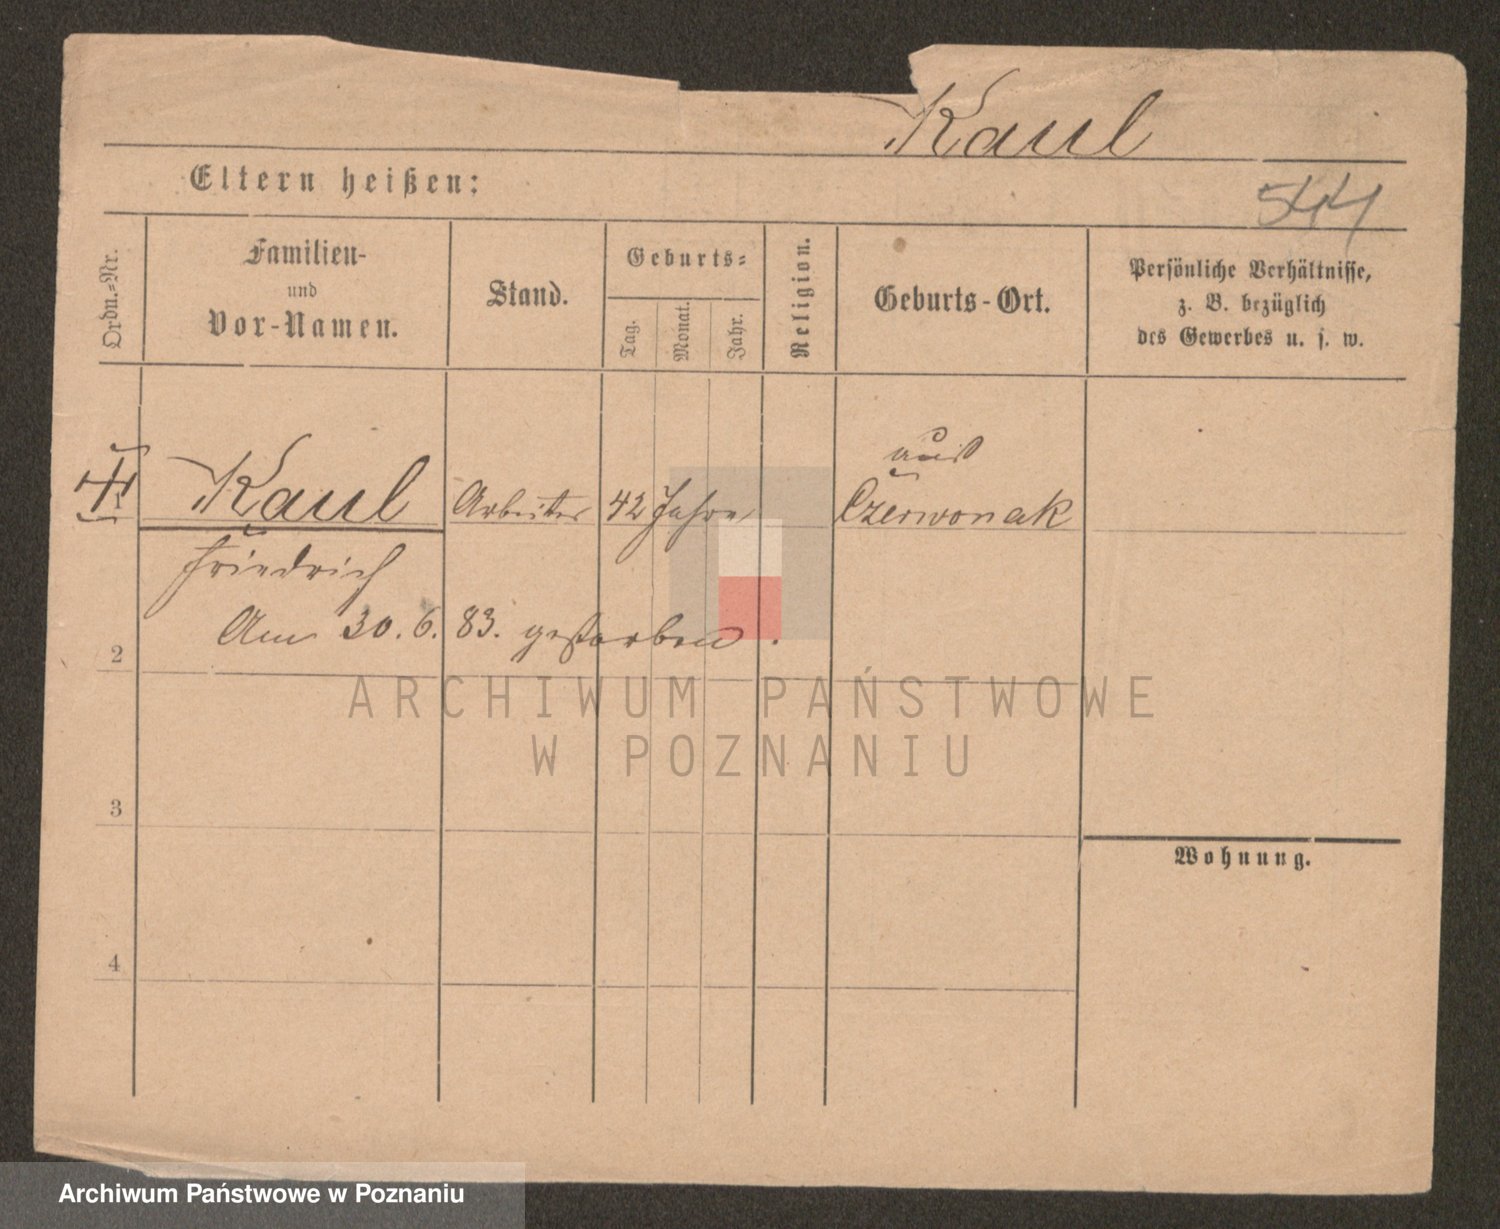 Kaul
Eltern heißen:
544
Ordn.-Nr.
Familien-
und
Vor-Namen.
Stand.
Geburts-
Tag.
Monat.
Jahr.
Religion.
Geburts-Ort.
Persönliche Verhältnisse,
z. B. bezüglich
des Gewerbes u. s. w.
Kaul Arbeiter 42 Jahre aus
Czerwonak
Friedrich
Am 30. 6. 83. gestorben.
2
ARCHIWUM PAŃSTWOWE
W POZNANIU
3
Wohnung.
4
Archiwum Państwowe w Poznaniu